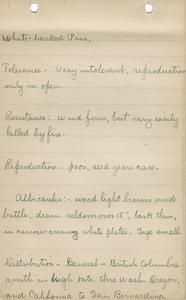 White-barked Pine.
Tolerance - Very intolerant, reproduction
only in open.
Resistance: Wind firm, but very easily
killed by fire.
Reproduction - poor, seed years rare.
Albicaulis: - wood light brown and
brittle, diam. seldom over 18", bark thin,
in narrow creamy white plates. Size small.
Distribution - General - British Columbia
south in high mts. thru Wash. Oregon,
and California to San Bernardino